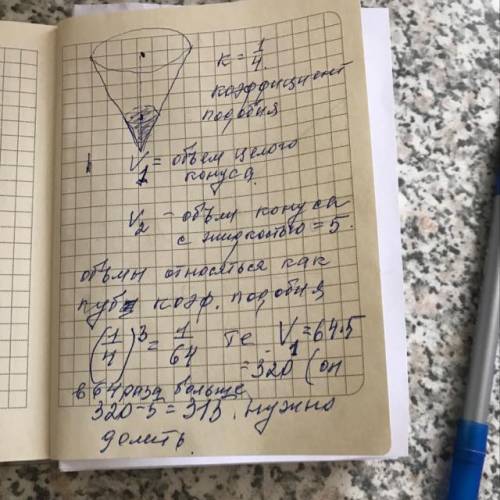 k = 1/4
коэффициент
подобия
V1 = объем целого
конуса
V2 - объём конуса
с жидкостью = 5.
объмы относяться как
куб коэф. подобия
(1/4)^3 = 1/64 те V1 = 64·5
= 320 (он
в 64 раза больше)
320-5 = 315. нужно
долить.